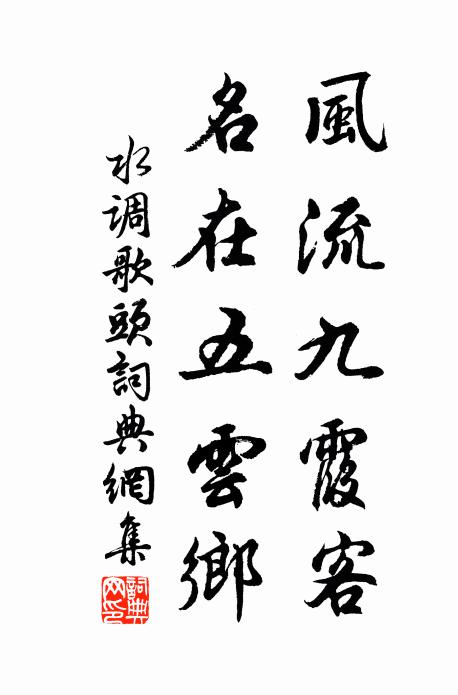 風流九霞客
名在五雲鄉
水调歌頭詞典網集
詞典网印